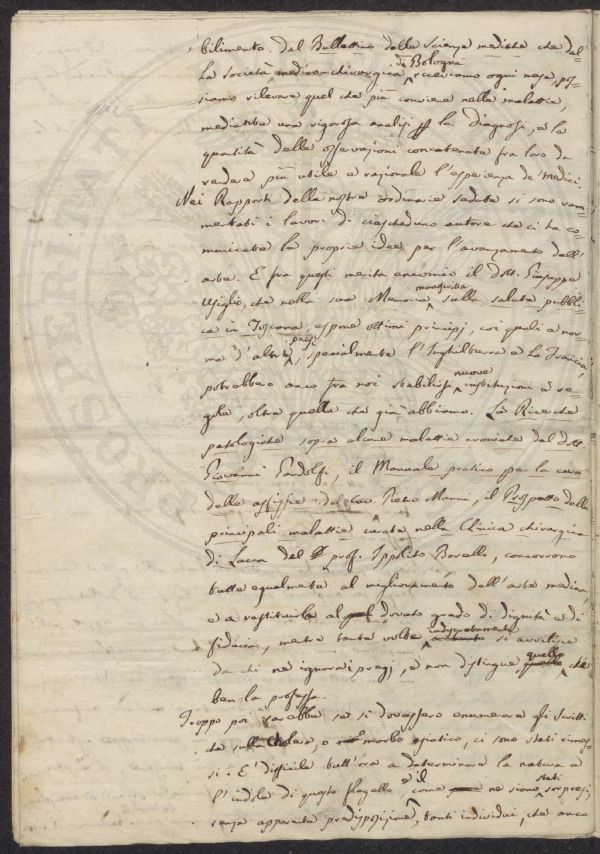 bilimento. Dal Bullettino delle scienze mediche che dal=
la società medico-chirurgica di Bologna riceviamo ogni mese, pos=
siamo rilevare quel che più conviene nelle malattie,
mediante una vigorosa analisi la diagnosi, e la
quantità delle osservazioni concatenate fra loro da
rendere più utile e razionale l'esperienza de' medici.
Nei Rapporti delle nostre ordinarie sedute si sono ram=
mentati i lavori di ciascheduno autore che ci ha co=
municate le proprie idee per l'avanzamento dell'
arte. E fra questi merita encomio il dott. Giuseppe
che nella sua Memoria manoscritta sulla salute pubbli=
ca in Toscana, espone ottimi principj, coi quali a nor=
ma d'altri paesi, specialmente l'Inghilterra e la Francia,
potrebbero anco fra noi stabilirsi nuove instituzioni e re=
gole, oltre quelle che già abbiamo. Le Ricerche
patologiche sopra alcune malattie croniche del dott.
Giovanni Gandolfi, il Manuale pratico per la cura
delle asfissie del cav. Pietro Manni, il Prospetto delle
principali malattie curate nella Clinica chirurgica
di Lucca del prof. Ippolito Borelli, concorrono
tutte egualmente al miglioramento dell'arte medica,
e a restituirle al dovuto grado di dignità e di
fiducia, mentre tante volte indiscretamente si avvilisce
da chi ne ignora i pregj, e non distingue quello che
ben la professa.
Troppo poi sarebbe se si dovessero enumerare gli scritti
che sulla Cholera, o morbo asiatico, ci sono stati rimes=
si. E' difficile tutt'ora a determinare la natura e
l'indole di questo flagello e il come ne siano stati sorpresi,
senza apparente predisposizione, tanti individui, che anco